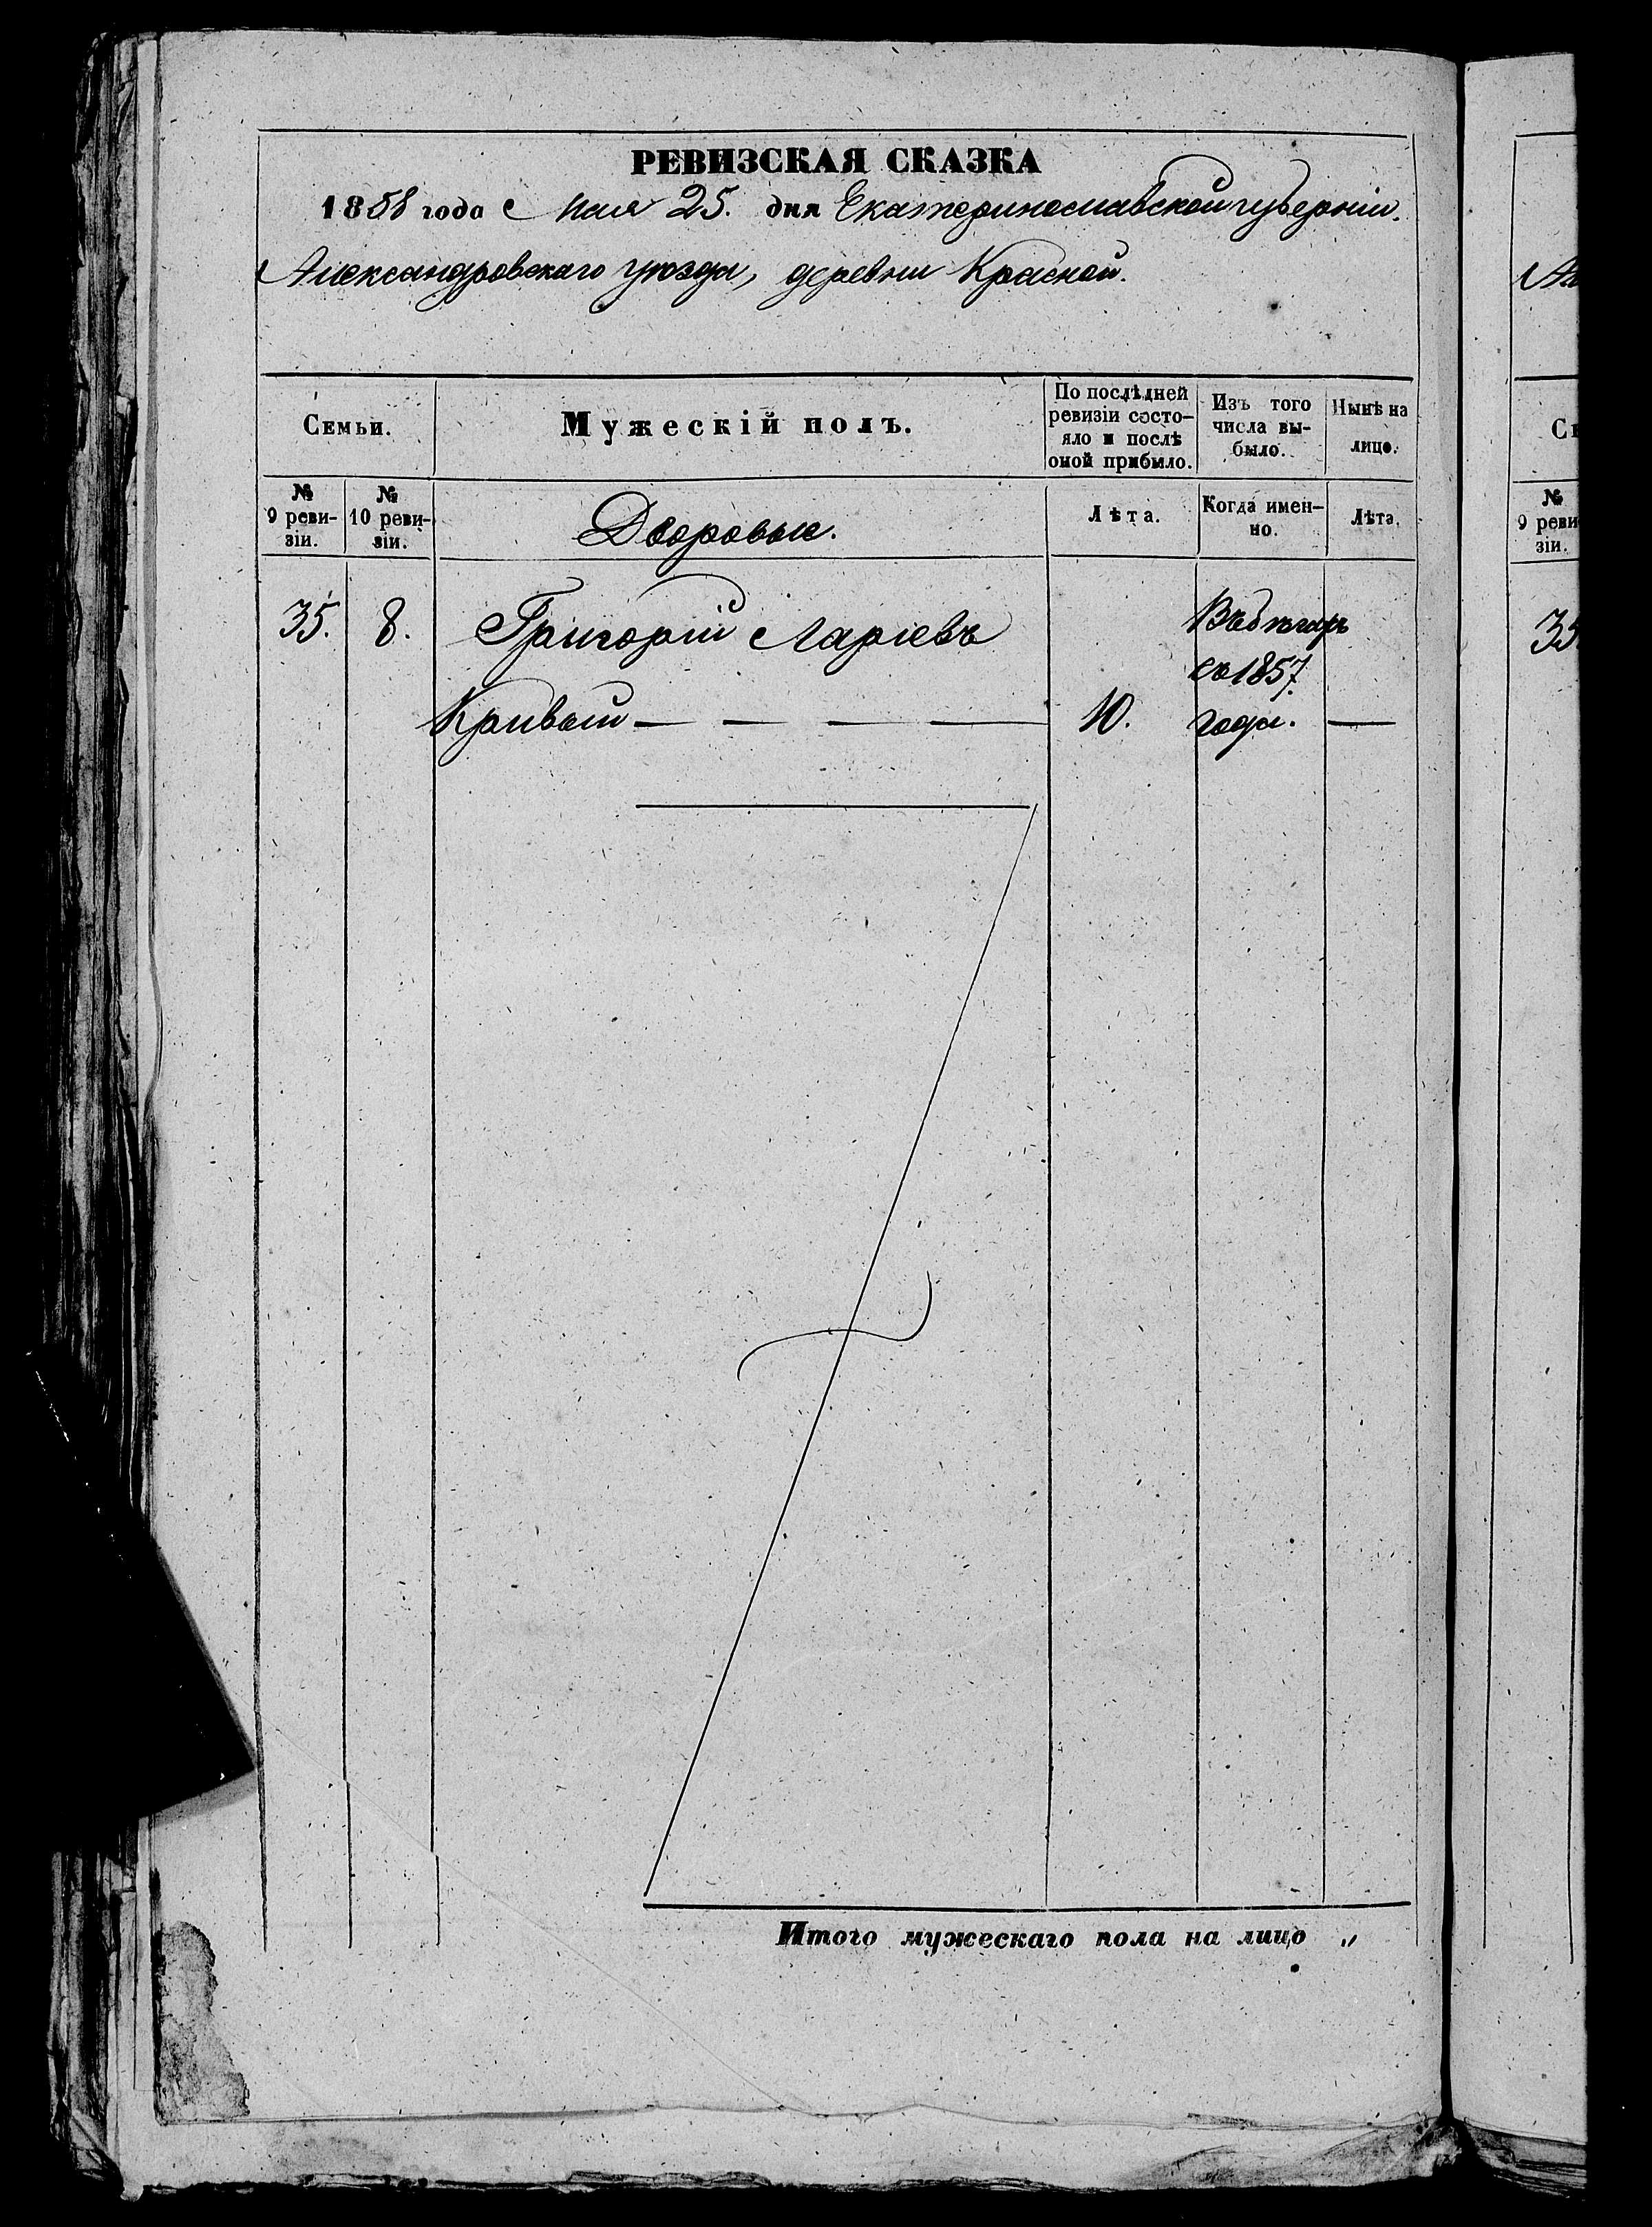 РЕВИЗСКАЯ СКАЗКА
1858 года Мая 25. дня Екатеринославской губерніи.
Александровскаго уѣзда, деревни Красной.
Семьи.
Мужескій полъ.
По послѣдней ревизіи состо-
яло и послѣ
оной прибыло.
Изъ того
числа вы-
было.
Нынѣ на
лицо.
№
9 реви-
зіи.
№
10 реви-
зіи.
Дворовые.
Лѣта.
Когда имен-
но.
Лѣта.
35. 8. Григорій Ларіевъ Въ бѣгахъ
съ 1857
Кривый — — — — 10. года. —
Итого мужескаго пола на лицо „
№
9 реви
зіи.
35